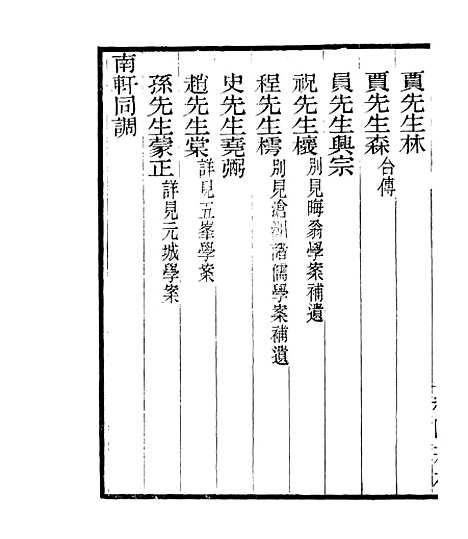 賈先生林
賈先生森 合傳
員先生興宗
祝先生櫰 別見晦翁學案補遺
程先生樗 別見滄洲諸儒學案補遺
史先生堯弼
趙先生棠 詳見五峯學案
孫先生蒙正 詳見元城學案
南軒同調